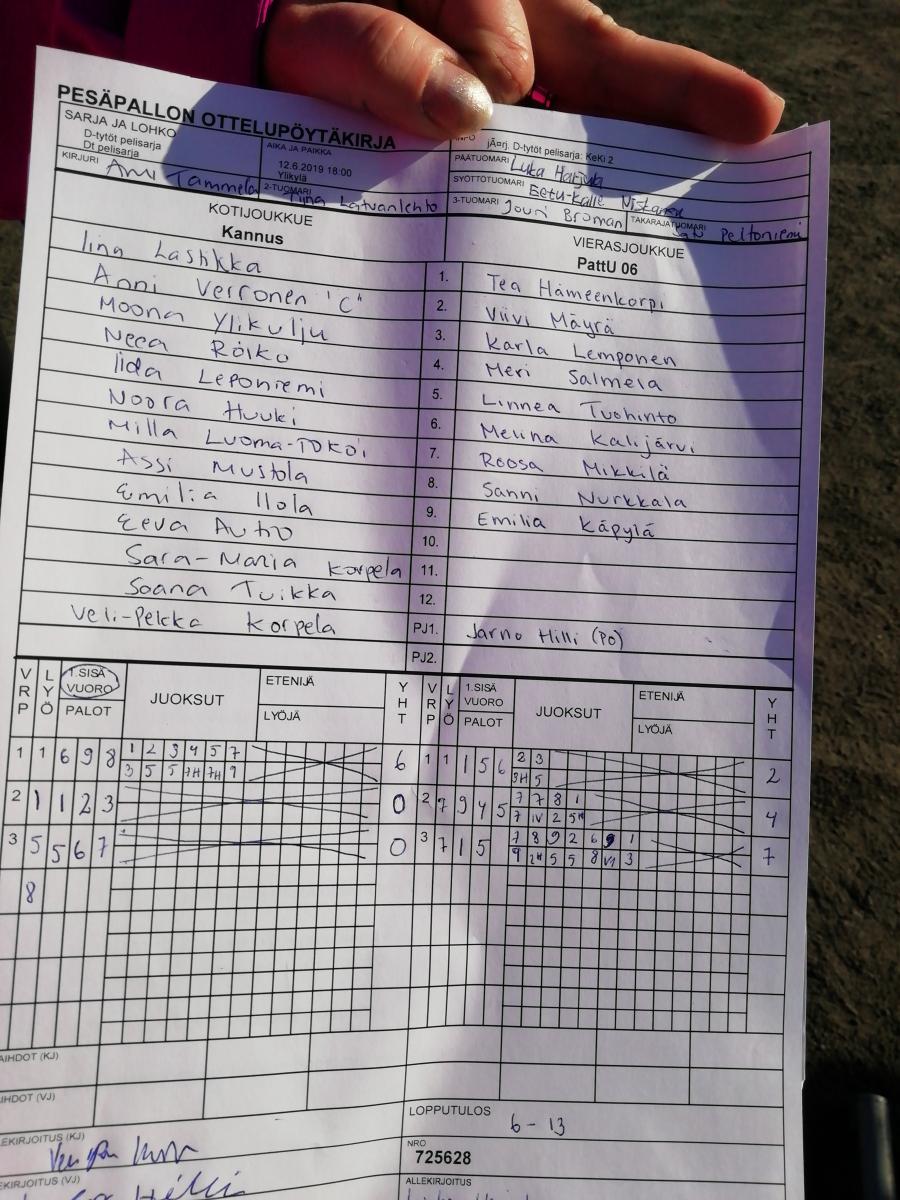 PESÄPALLON OTTELUPÖYTÄKIRJA
SARJA JA LOHKO
D-tytöt pelisarja
Dt pelisarja
AIKA JA PAIKKA
12.6.2019 18:00
Ylikylä
INFO
jÃ¤rj. D-tytöt pelisarja: KeKi 2
PÄÄTUOMARI Luka Harjula
SYÖTTÖTUOMARI Eetu-Kalle Niskanen
KIRJURI Anu Tammela
2-TUOMARI Tiina Latvanlehto
3-TUOMARI Jouni Broman
TAKARAJATUOMARI Satu Peltoniemi
KOTIJOUKKUE
Kannus
VIERASJOUKKUE
PattU 06
Iina Lashkka 1. Tea Hämeenkorpi
Anni Verronen "C" 2. Viivi Mäyrä
Moona Ylikulju 3. Karla Lemponen
Neea Röiko 4. Meri Salmela
Iida Leponiemi 5. Linnea Tuohinto
Noora Huuki 6. Melina Kalijärvi
Milla Luoma-Tokoi 7. Roosa Mikkilä
Assi Mustola 8. Sanni Nurkkala
Emilia Ilola 9. Emilia Käpylä
Eeva Autio 10.
Sara-Maria Korpela 11.
Soana Tuikka 12.
Veli-Pekka Korpela PJ1. Jarno Hilli (PO)
PJ2.
VRP LYÖ 1.SISÄ VUORO PALOT JUOKSUT ETENIJÄ LYÖJÄ YHT VRP LYÖ 1.SISÄ VUORO PALOT JUOKSUT ETENIJÄ LYÖJÄ YHT
1 1 6 9 8 1 2 3 4 5 7 6 1 1 1 5 6 2 3 2
3 5 5 7H 7H 9 3H 5
2 1 1 2 3 0 2 7 9 4 5 7 7 8 1 4
7 IV 2 5H
3 5 5 6 7 0 3 7 1 5 7 8 9 2 6 9 1 7
9 2H 5 5 8 VI 3
8
AIHDOT (KJ)
AIHDOT (VJ)
LOPPUTULOS
6 - 13
EKIRJOITUS (KJ)
NRO
725628
EKIRJOITUS (VJ)
Hilli
ALLEKIRJOITUS